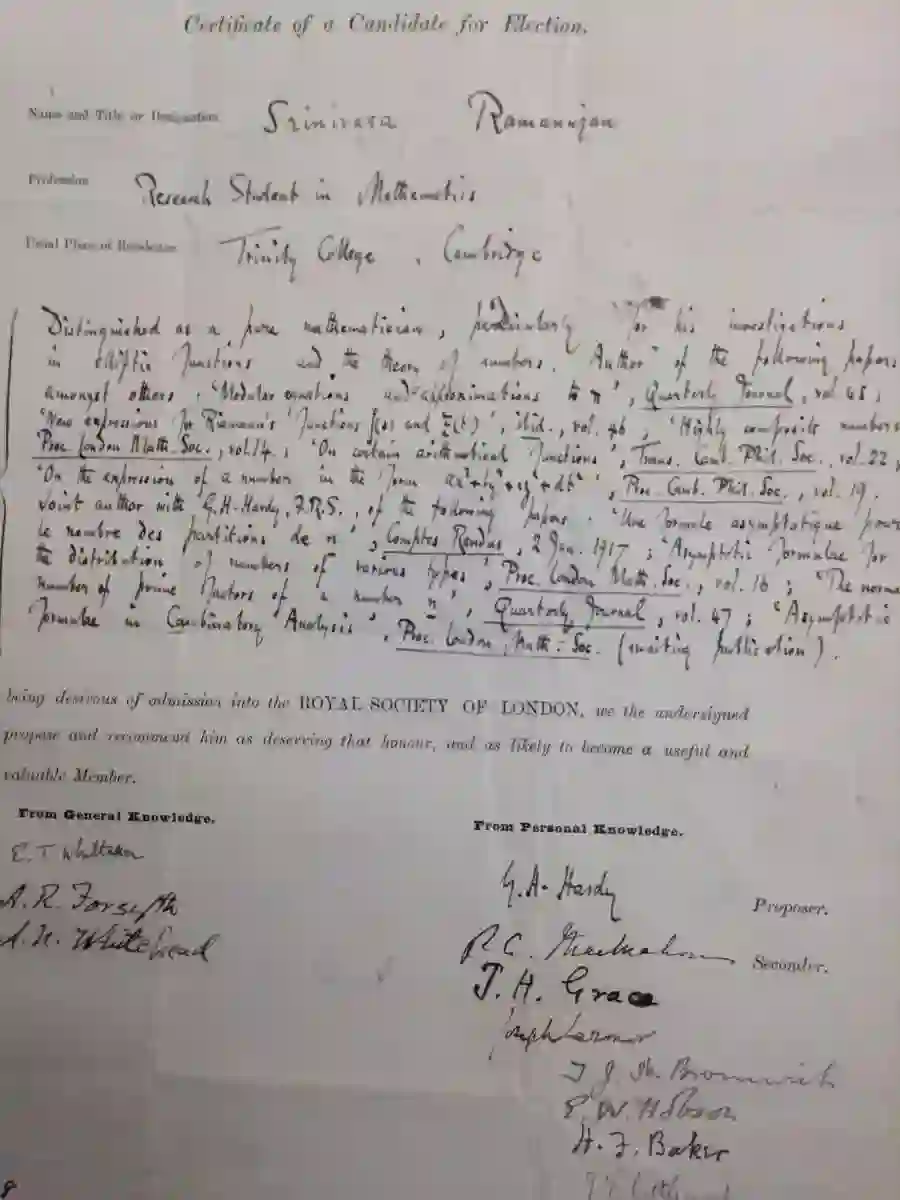 Certificate of a Candidate for Election.
Name and Title or Designation Srinivasa Ramanujan
Profession Research Student in Mathematics
Usual Place of Residence Trinity College, Cambridge
Distinguished as a pure mathematician, particularly for his investigations
in elliptic functions and the theory of numbers. Author of the following papers,
amongst others. 'Modular equations and approximations to π', Quarterly Journal, vol. 45;
'New expressions for Riemann's functions ξ(s) and Ξ(t)', ibid., vol. 46; 'Highly composite numbers
Proc. London Math. Soc., vol. 14.; 'On certain arithmetical functions', Trans. Camb. Phil. Soc., vol. 22;
'On the expression of a number in the form ax²+by²+cz²+dt²', Proc. Camb. Phil. Soc., vol. 19.
Joint author with G.H. Hardy, F.R.S., of the following papers. 'Une formule asymptotique pour
le nombre des partitions de n', Comptes Rendus, 2 Jan. 1917; 'Asymptotic formulae for
the distribution of numbers of various types', Proc. London Math. Soc., vol. 16; 'The norma
number of prime factors of a number n', Quarterly Journal, vol. 47; 'Asymptotic
formulae in Combinatory Analysis', Proc. London Math. Soc. (awaiting publication).
being desirous of admission into the ROYAL SOCIETY OF LONDON, we the undersigned
propose and recommend him as deserving that honour, and as likely to become a useful and
valuable Member.
From General Knowledge.
From Personal Knowledge.
E. T. Whittaker
A. R. Forsyth
A. N. Whitehead
G. H. Hardy Proposer.
P. A. MacMahon Seconder.
J. H. Grace
Joseph Larmor
T. J. I'A. Bromwich
E. W. Hobson
H. F. Baker